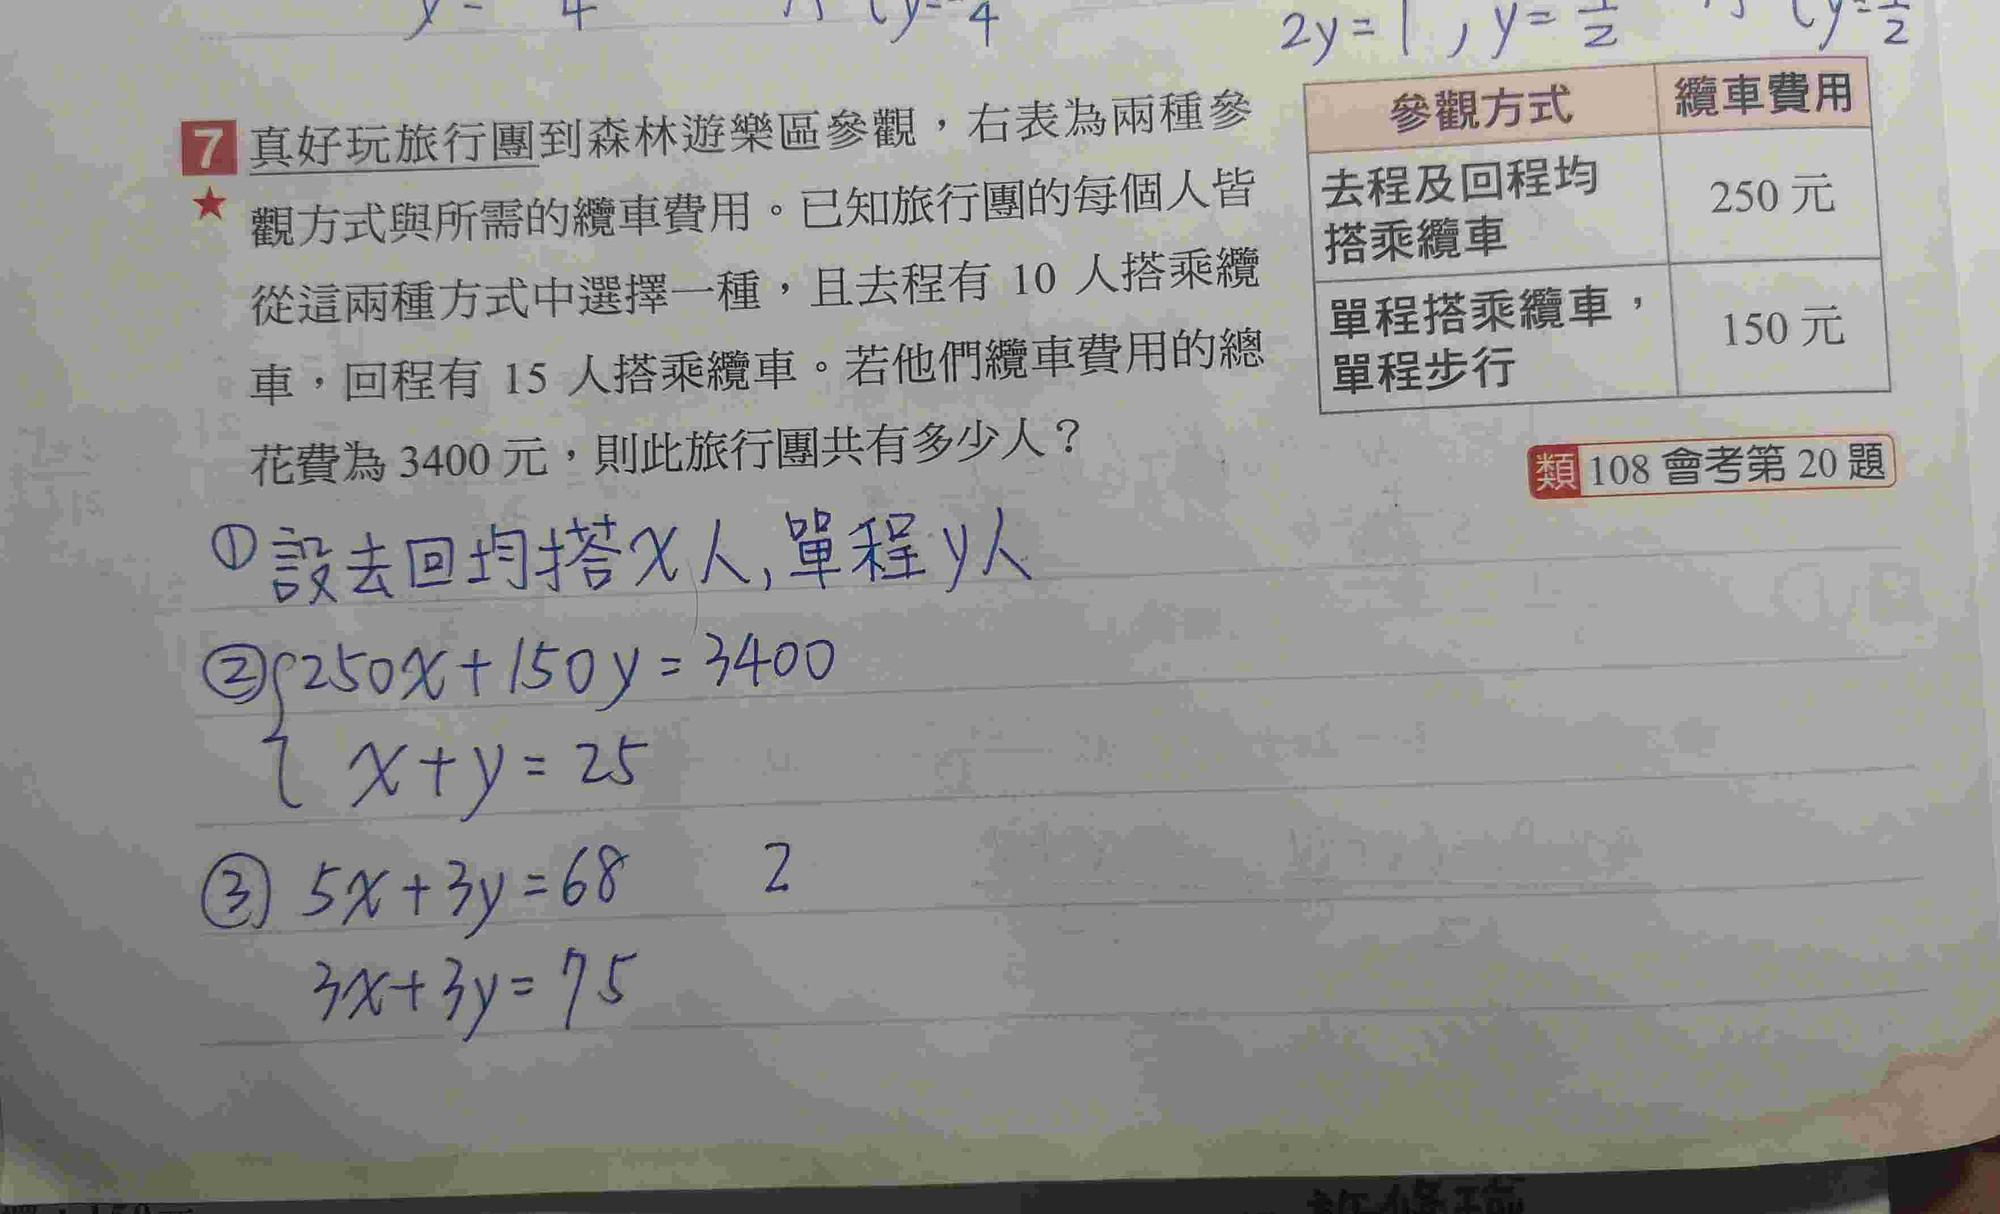 2y=1, y=1/2
7 真好玩旅行團到森林遊樂區參觀，右表為兩種參
觀方式與所需的纜車費用。已知旅行團的每個人皆
從這兩種方式中選擇一種，且去程有 10 人搭乘纜
車，回程有 15 人搭乘纜車。若他們纜車費用的總
花費為 3400 元，則此旅行團共有多少人？
參觀方式 纜車費用
去程及回程均
搭乘纜車 250 元
單程搭乘纜車，
單程步行 150 元
類 108 會考第 20 題
① 設去回均搭x人, 單程y人
② {250x+150y=3400
x+y=25
③ 5x+3y=68 2
3x+3y=75